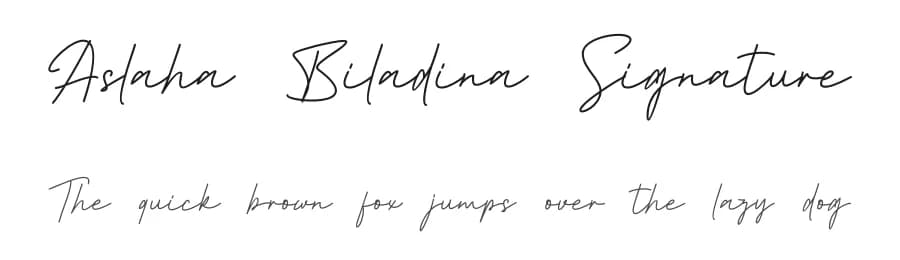 Aslaha Biladina Signature
The quick brown fox jumps over the lazy dog